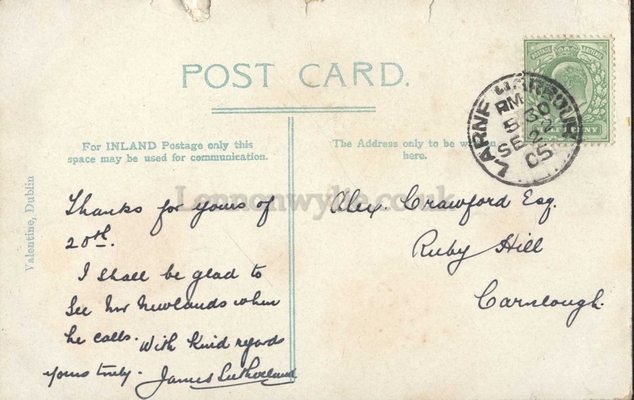 POST CARD.
For INLAND Postage only this
space may be used for communication.
The Address only to be written
here.
Valentine, Dublin
LARNE HARBOUR
SE 2
05
Thanks for yours of
20th.
I shall be glad to
See Mr Newlands when
he calls. With kind regards
yours truly. James Sutherland
Alex. Crawford Esq.
Ruby Hill
Carnlough.
Lennonwylie.co.uk